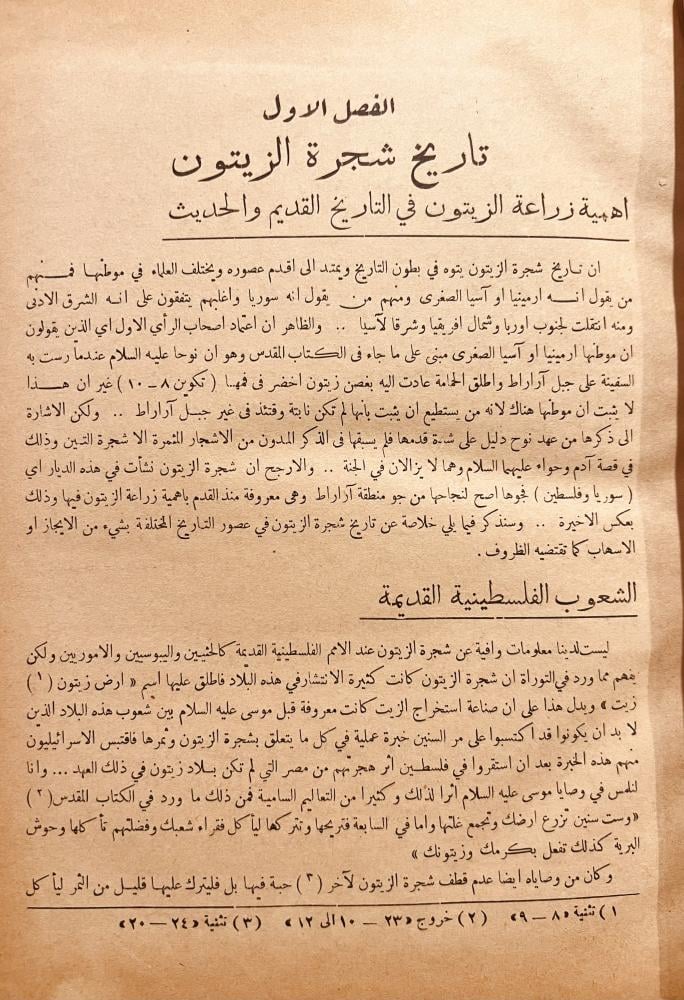 الفصل الاول
تاريخ شجرة الزيتون
اهمية زراعة الزيتون في التاريخ القديم والحديث
ان تاريخ شجرة الزيتون يتوه في بطون التاريخ ويمتد الى اقدم عصوره ويختلف العلماء في موطنها فمنهم
من يقول انه ارمينيا او آسيا الصغرى ومنهم من يقول انه سوريا واغلبهم يتفقون على انه الشرق الادنى
ومنه انتقلت لجنوب اوربا وشمال افريقيا وشرقا لآسيا .. والظاهر ان اعتماد اصحاب الرأي الاول اي الذين يقولون
ان موطنها ارمينيا او آسيا الصغرى مبنى على ما جاء فى الكتاب المقدس وهو ان نوحا عليه السلام عندما رست به
السفينة على جبل آراراط واطلق الحمامة عادت اليه بغصن زيتون اخضر فى فمها ( تكوين ٨ – ١٠ ) غير ان هذا
لا يثبت ان موطنها هناك لانه من يستطيع ان يثبت بانها لم تكن نابتة وقتئذ فى غير جبل آراراط .. ولكن الاشارة
الى ذكرها من عهد نوح دليل على شدة قدمها فلم يسبقها فى الذكر المدون من الاشجار المثمرة الا شجرة التين وذلك
في قصة آدم وحواء عليهما السلام وهما لا يزالان في الجنة .. والارجح ان شجرة الزيتون نشأت في هذه الديار اي
( سوريا وفلسطين ) فجوها اصح لنجاحها من جو منطقة آراراط وهى معروفة منذ القدم باهمية زراعة الزيتون فيها وذلك
بعكس الاخيرة .. وسنذكر فيما يلي خلاصة عن تاريخ شجرة الزيتون في عصور التاريخ المختلفة بشيء من الايجاز او
الاسهاب كما تقتضيه الظروف .
الشعوب الفلسطينية القديمة
ليست لدينا معلومات وافية عن شجرة الزيتون عند الامم الفلسطينية القديمة كالحثيين واليبوسيين والاموريين ولكن
يفهم مما ورد في التوراة ان شجرة الزيتون كانت كثيرة الانتشار في هذه البلاد فاطلق عليها اسم « ارض زيتون (١)
زيت » ويدل هذا على ان صناعة استخراج الزيت كانت معروفة قبل موسى عليه السلام بين شعوب هذه البلاد الذين
لا بد ان يكونوا قد اكتسبوا على مر السنين خبرة عملية في كل ما يتعلق بشجرة الزيتون وثمرها فاقتبس الاسرائيليون
منهم هذه الخبرة بعد ان استقروا في فلسطين اثر هجرتهم من مصر التي لم تكن بلاد زيتون في ذلك العهد ... وانا
لنلمس في وصايا موسى عليه السلام اثرا لذلك وكثيرا من التعاليم السامية فمن ذلك ما ورد في الكتاب المقدس (٢)
«وست سنين تزرع ارضك وتجمع غلتها واما في السابعة فتريحها وتتركها ليأكل فقراء شعبك وفضلتهم تأكلها وحوش
البرية كذلك تفعل بكرمك وزيتونك »
وكان من وصاياه ايضا عدم قطف شجرة الزيتون لآخر (٣) حبة فيها بل فليترك عليها قليل من الثمر ليأكل
١) تثنية «٨ – ٩» (٢) خروج «٢٣ – ١٠ الى ١٢» (٣) تثنية «٢٤ – ٢٠»